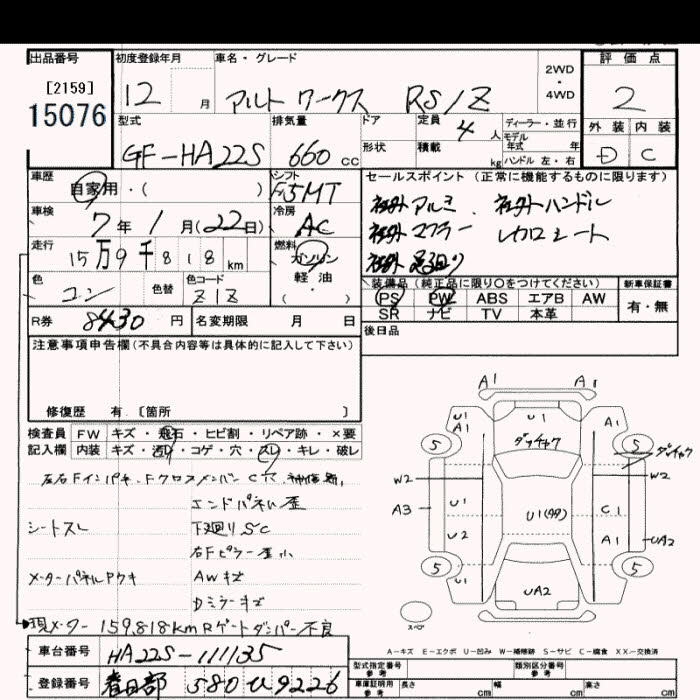 出品番号 初度登録年月 車名・グレード 2WD・4WD 評価点
[2159]
15076 12月 アルト ワークス RS/Z 2
型式 排気量 ドア 定員 4人 ディーラー・並行 外装 内装
モデル年式 年
GF-HA22S 660cc 形状 積載 kg ハンドル 左・右 D C
車歴 自家用・( ) シフト F5MT セールスポイント(正常に機能するものに限ります)
車検 7年1月(22日) 冷房 AC 社外アルミ、社外ハンドル
走行 15万9千818km 燃料 ガソリン 社外マフラー レカロシート
軽油 社外足回り
( )
色 コン 色替 色コード ZIZ 装備品(純正品に限り○をつけてください) 新車保証書
PS PW ABS エアB AW 有・無
SR ナビ TV 本革
R券 8430円 名変期限 月 日 後日品
注意事項申告欄(不具合内容等は具体的に記入して下さい)
修復歴 有.〔箇所 〕
検査員 FW キズ・飛石・ヒビ割・リペア跡・×要
記入欄 内装 キズ・汚れ・コゲ・穴・スレ・キレ・破レ
左右Fインパネ、Fクロスメンバー
エンドパネル歪
シートスレ 下廻りSC
右Fピラー歪小
メーターパネルアクキ AWキズ
Dミラーキズ
現メーター159,818km Rゲートダンパー不良
車台番号 HA22S-111135
登録番号 春日部 580 u 9226
A1 A1
U1 A1 U1 A1
5 ダイチャク 5 ダイチャク
W2 W2
A3 U1 U1(多数) C1
U2 A1 UA2
5 5
U1 UA2
スペア
A-キズ E-エクボ U-凹み W-補修跡 S-サビ C-腐食 XX-交換済
型式指定番号 参考 類別区分番号 参考
車庫証明用 参考 長さ cm 幅 cm 高さ cm